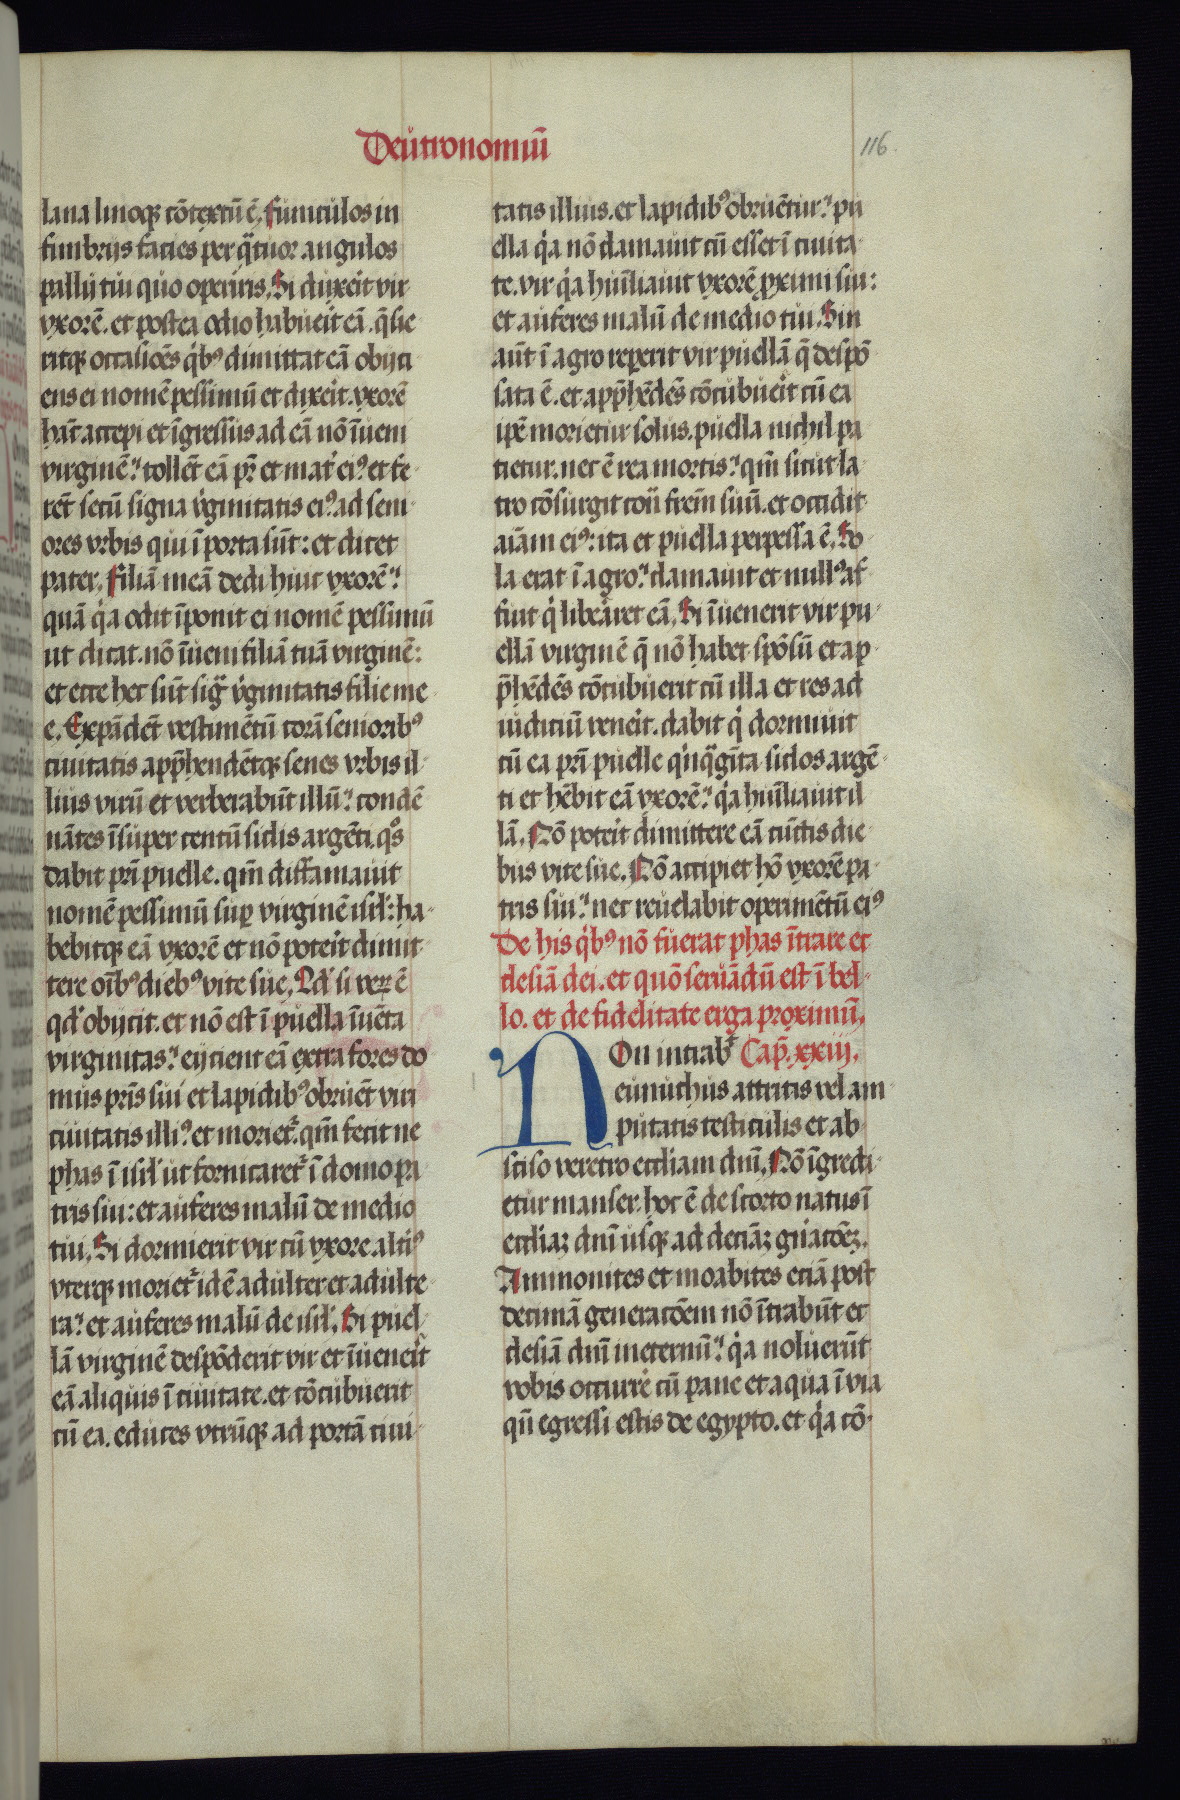 Deutronomiū
116.
lana linoqꝫ cōtextū ē. Funiculos in
fimbrijs facies per q̈tuor angulos
pallij tui quo operiris. Si duxe͛it vir
vxorē. et postea odio habue͛it eā. q̄sie
ritqꝫ occasiōēs q̇bꝰ dimittat eā obijci
ens ei nomē pessimū et dixe͛it. vxorē
hāc accepi et īgressus ad eā nō īueni
virginē. tollēt eā pr̄ et mat͛ eiꝰ. et fe
rēt secū signa v͛ginitatis eiꝰ ad seni
ores vrbis qui ī porta sūt: et dicet
pater. Filiā meā dedi huic vxorē.
quā q̇a odit īponit ei nomē pessimū
ut dicat. nō īueni filiā tuā virginē:
et ecce hec sūt sig̈ v͛ginitatis filie me
e. Expādēt vestimētū corā senioribꝰ
ciuitatis app̄hendētqꝫ senes vrbis il
lius virū et verberabūt illū. condē
nātes īsuper centū siclis argēti. q̊s
dabit pr̄i puelle. qm̄ diffamauit
nomē pessimū suꝑ virginē isrl̄: ha
bebitqꝫ eā vxorē et nō pote͛it dimit
tere oı̄bꝰ diebꝰ vite sue. Qd̓ si veꝝ ē
qd̓ obijcit. et nō est ī puella īuēta
virginitas. eijcient eā extra fores do
mus pr̄is sui et lapidibꝰ obruēt viri
ciuitatis illiꝰ. et moriet᷑. qm̄ fecit ne
phas ī isrl̄ ut fornicaret᷑ ī domo pa
tris sui: et auferes malū de medio
tui. Si dormierit vir cū vxore alt͛iꝰ
vterqꝫ moriet᷑ id ē adulter et adulte
ra. et auferes malū de isrl̄. Si puel
lā virginē despōderit vir et īuene͛it
eā aliquis ī ciuitate. et cōcubuerit
cū ea. educes vtrūqꝫ ad portā ciui
tatis illius. et lapidibꝰ obruētur. pu
ella q̇a nō clamauit cū esset ī ciuita
te. vir q̇a huı̄liauit vxorē ꝓximi sui:
et auferes malū de medio tui. Sin
aūt ī agro repe͛rit vir puellā q̄ despō
sata ē. et app̄hēdēs cōcubue͛it cū ea
ip̄e morietur solus. puella nichil pa
tietur. nec ē rea mortis. qm̄ sicut la
tro cōsurgit cont͛ fr̄em suū. et occidit
aı̄am eiꝰ: ita et puella perpessa ē. So
la erat ī agro. clamauit et nullꝰ af
fuit q̇ libe͛aret eā. Si īuenerit vir pu
ellā virginē q̄ nō habet spōsū et ap
p̄hēdēs cōcubuerit cū illa et res ad
iudiciū vene͛it. dabit q̇ dormiuit
cū ea pr̄i puelle q̇nq̈gīta siclos argē
ti et hēbit eā vxorē. q̇a huı̄liauit il
lā. Nō pote͛it dimittere eā cūctis die
bus vite sue. Nō accipiet hō vxorē pa
tris sui. nec reuelabit operimētū eiꝰ
De his q̇bꝰ nō fuerat phas ītrare ec
clesiā dei. et quō seruādū est ī bel
lo. et de fidelitate erga proximū.
NOn intrab᷑ Cap̄. xxiij.
eunuchus attritis vel am
putatis testiculis et ab
sciso veretro eccl̄iam dnī. Nō īgredi
etur manser. hoc ē de scorto natus ī
eccl̄iaꝫ dnī usqꝫ ad decı̄aꝫ gn͛acōeꝫ.
Ammonites et moabites eciā post
decimā generacōem nō ītrabūt ec
clesiā dnī ineternū. q̇a noluerūt
vobis occurre͛ cū pane et aqua ī via
qn̄ egressi estis de egypto. et q̇a cō